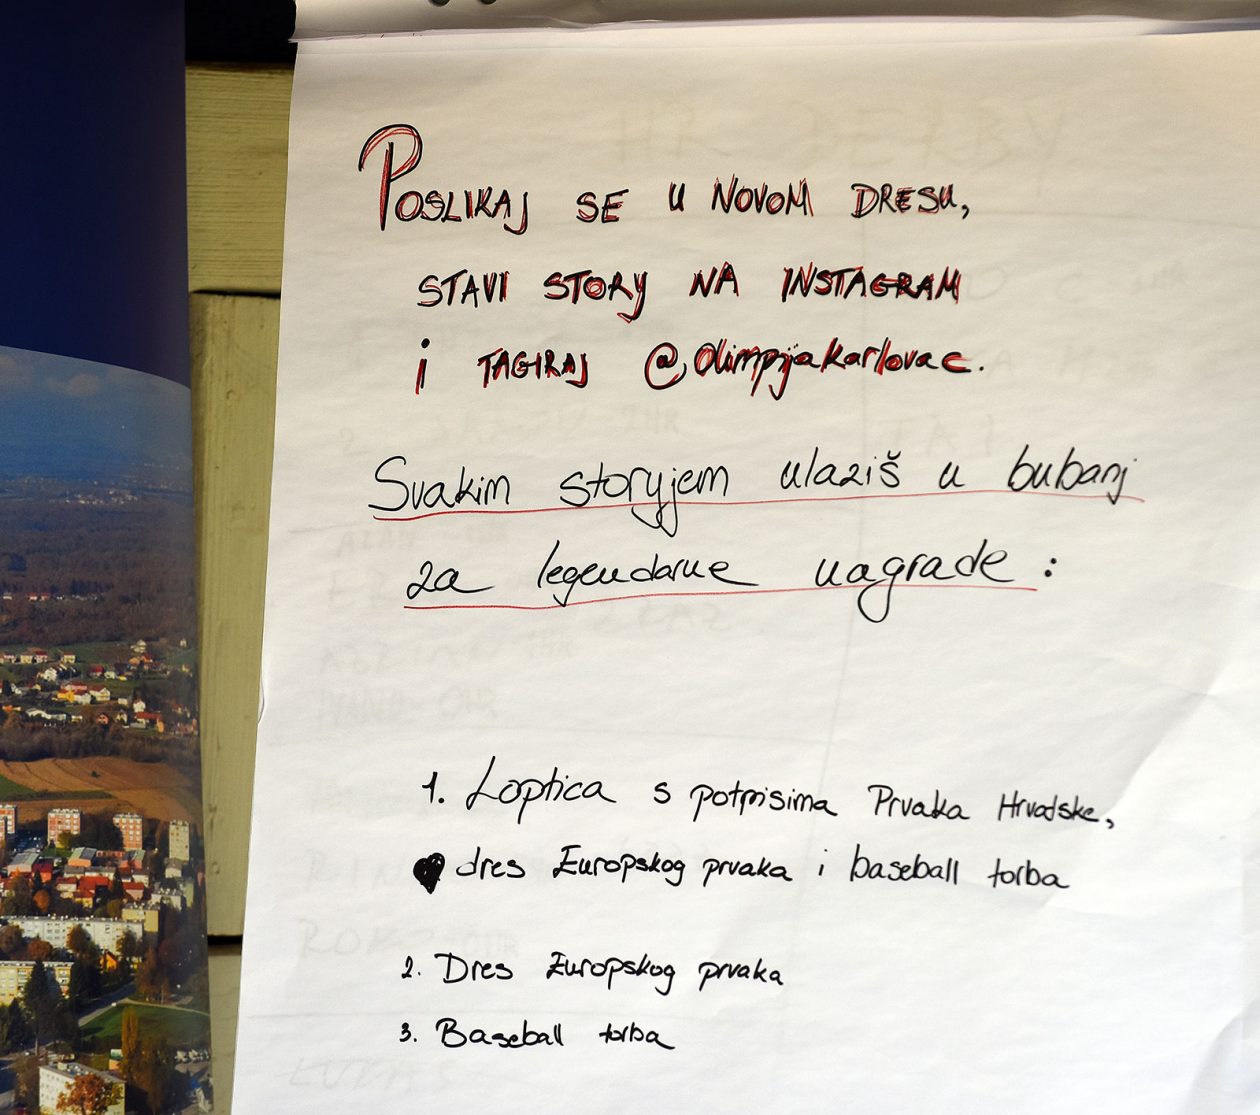 POSLIKAJ SE U NOVOM DRESU,
STAVI STORY NA INSTAGRAM
i TAGIRAJ @olimpijakarlovac.
Svakim storyjem ulaziš u bubanj
za legendarne nagrade:
1. Loptica s potpisima Prvaka Hrvatske,
dres Europskog prvaka i baseball torba
2. Dres Europskog prvaka
3. Baseball torba